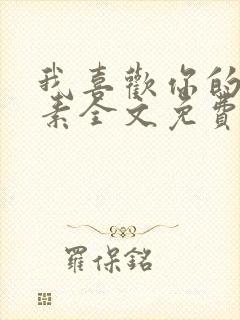 我喜歡你的
素全文免費
羅保銘